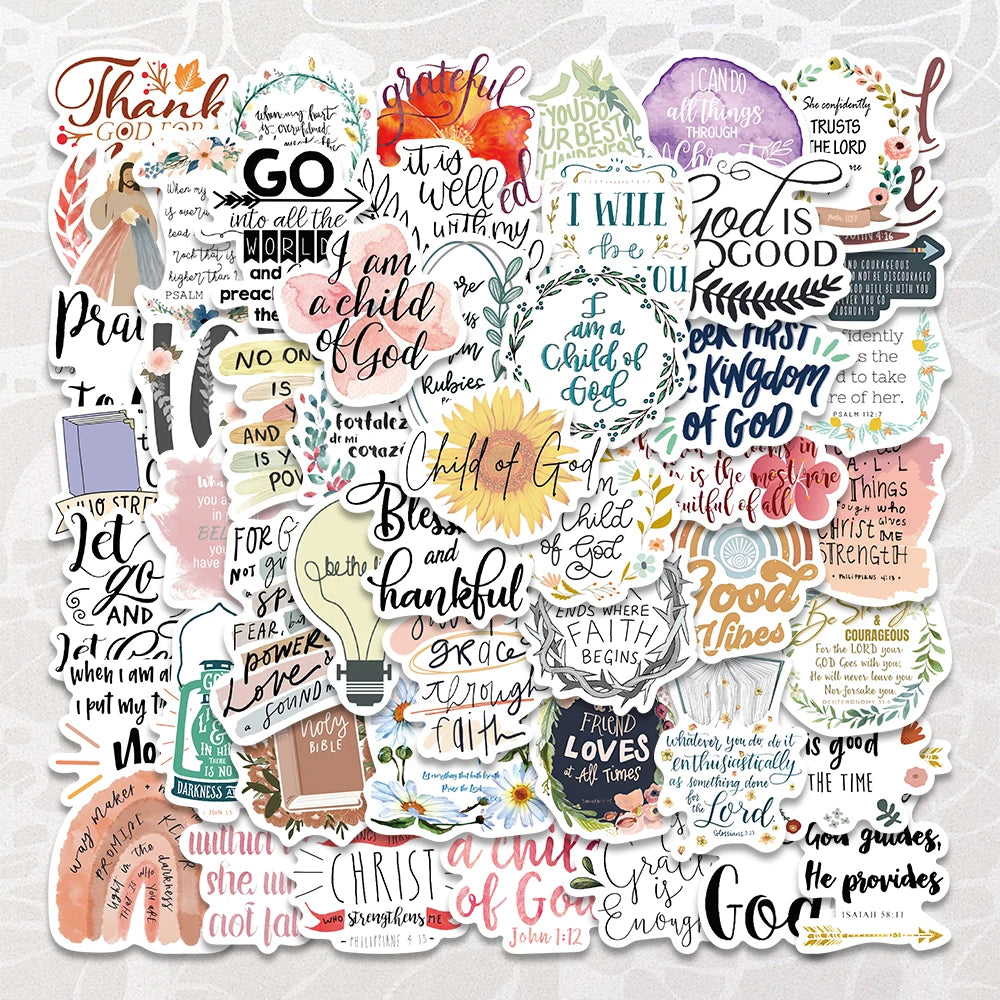 Thank
GOD FOR
when my heart
is overwhelmed
grateful
YOU DO
UR BEST
I CAN DO
all things
THROUGH
Christ
She confidently
TRUSTS
THE LORD
When my
is over
lead
rock that is
higher than
PSALM
GO
into all the
WORLD
and
preach
the
it is
well
with my
ed
I WILL
be
YOU
God IS
GOOD
Psalm 112:7
JOHN 4:16
ND COURAGEOUS
NOT BE DISCOURAGED
GOD WILL BE WITH YOU
EVER YOU GO
JOSHUA 1:9
I am
a child
of God
Rubies
I
am a
Child of
God
EEK FIRST
KINGDOM
OF GOD
fidently
s the
d to take
re of her.
PSALM 112:7
Prai
NO ON
IS
Y
AND
IS Y
POW
Fortalez
de mi
corazó
Child of God
WHO STREN
Wha
you a
in
BEL
you
have
Bless
and
thankful
be the l
Child
of God
oms in
is the most rare
uitful of all
A·L·L
Things
rough who
Christ gives
ME
STRENGTH
·PHILIPPIANS 4:13·
Let
go
AND
Let
FOR G
NOT g
a SP
FEAR, bu
POWER
Love
a sound
grace
through
faith
ENDS WHERE
FAITH
BEGINS
Good
Vibes
Be Strong
&
COURAGEOUS
For the LORD your
GOD Goes with you;
He will never leave you
Nor forsake you.
DEUTERONOMY 31:6
When I am a
I put my t
No
GO
L
&
IN HI
THERE
IS NO
DARKNESS A
1 JOHN 1:5
holy
BIBLE
Let everything that hath breath
Praise the Lord
FRIEND
LOVES
at All Times
whatever you do, do it
enthusiastically
as something done
for the
Lord.
Colossians 3:23
is good
THE TIME
way maker
PROMISE KEEPER
light in the darkness
THAT IS WHO YOU ARE
within
she wi
not fal
NGS THROUGH
CHRIST
WHO strengthens ME
-PHILIPPIANS 4:13-
a chil
of God
John 1:12
Grace
is
Enoug
God
God guides,
He provides
ISAIAH 58:11